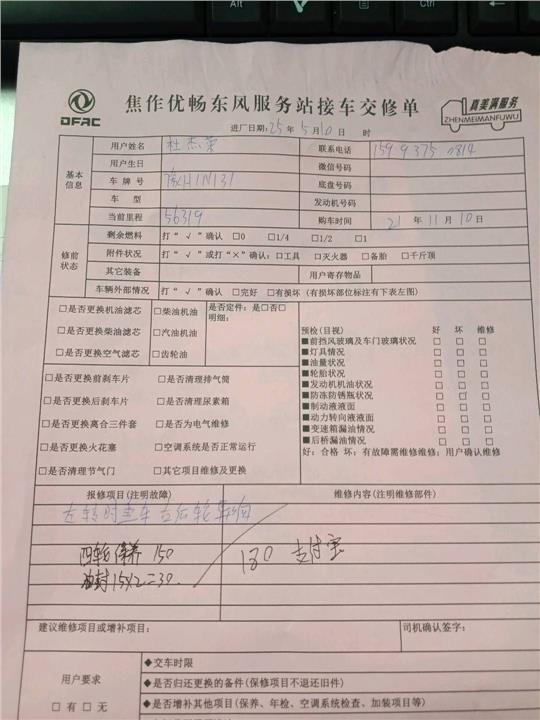 Alt
Ctrl
DFAC
焦作优畅东风服务站接车交修单
真美满服务
ZHENMEIMANFUWU
进厂日期:25年5月10日 时
基本信息
用户姓名 杜杰荣 联系电话 159 9375 0814
用户生日 微信号码
车牌号 豫H1N131 底盘号码
车型 发动机号码
当前里程 56319 购车时间 21年11月10日
修前状态
剩余燃料 打“√”确认 □0 □1/4 □1/2 □1
附件状况 打“√”或打“×”确认:□工具 □灭火器 □备胎 □千斤顶
其它装备 用户寄存物品
车辆外部情况 打“√”确认 □完好 □有损坏(有损坏部位标注有下表左图)
□是否更换机油滤芯 □柴油机油 是否定件:是□否□
明细:
□是否更换柴油滤芯 □汽油机油
□是否更换空气滤芯 □齿轮油
预检(目视) 好 坏 维修
■前挡风玻璃及车门玻璃状况 □ □ □
■灯具情况 □ □ □
■油量状况 □ □ □
■轮胎状况 □ □ □
■发动机机油状况 □ □ □
■防冻防锈瓶状况 □ □ □
■制动液液面 □ □ □
■动力转向液液面 □ □ □
■变速箱漏油情况 □ □ □
■后桥漏油情况 □ □ □
好:合格 坏:有故障需维修维修:用户确认维修
□是否更换前刹车片 □是否清理排气筒
□是否更换后刹车片 □是否清理尿素箱
□是否更换离合三件套 □是否为电气维修
□是否更换火花塞 □空调系统是否正常运行
□是否清理节气门 □其它项目维修及更换
报修项目(注明故障) 维修内容(注明维修部件)
左转时 车右后轮
四轮保养 150
油封15×2=30
180 支付宝
建议维修项目或增补项目: 司机确认签字:
用户要求
□有 □无
◆交车时限
◆是否归还更换的备件(保修项目不退还旧件)
◆是否增补其他项目(保养、年检、空调系统检查、加装项目等)